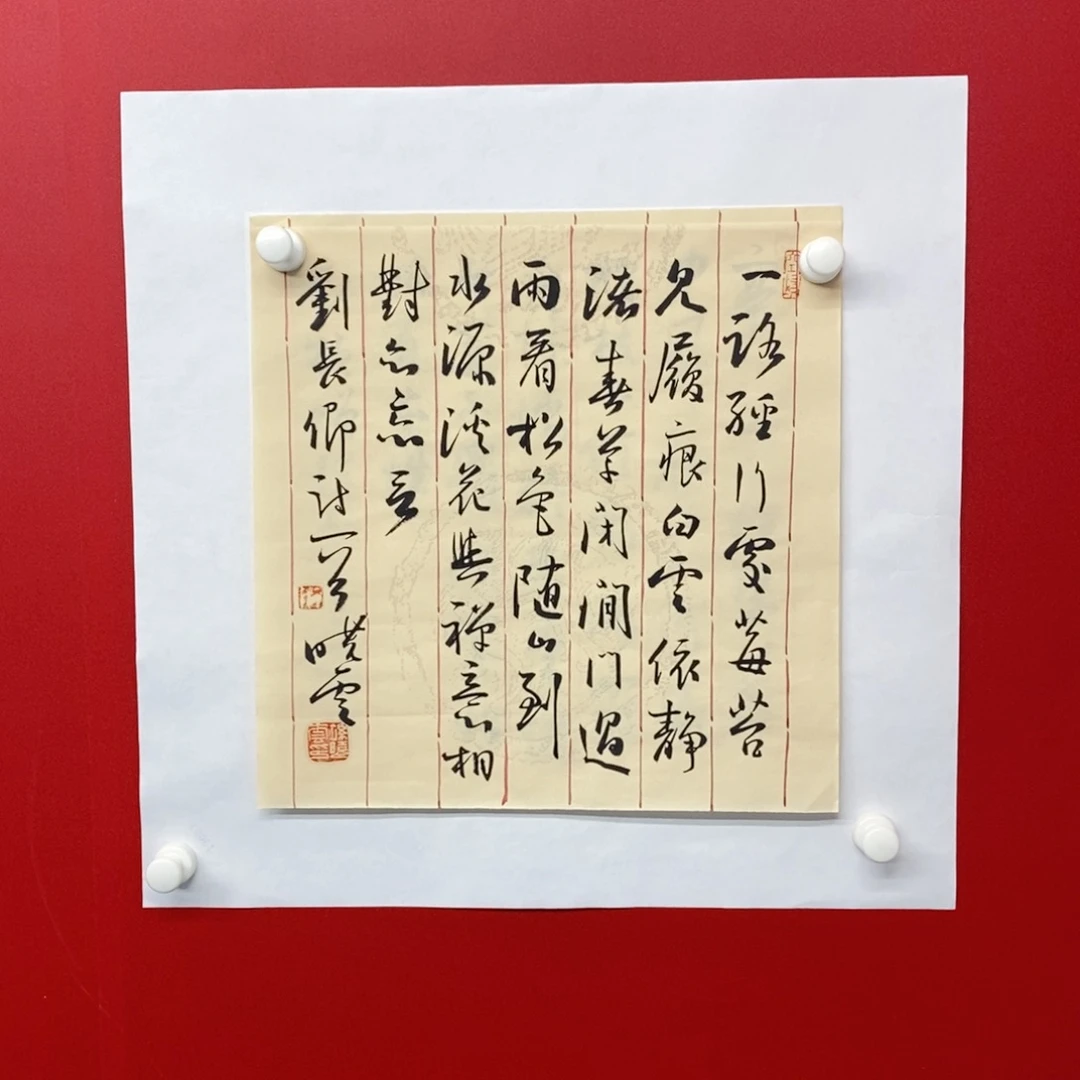 一路經行處莓苔
見履痕白雲依静
渚春草閉閒門過
雨看松色随山到
水源溪花與禪意相
對亦忘言
劉長卿詩一首曉雲